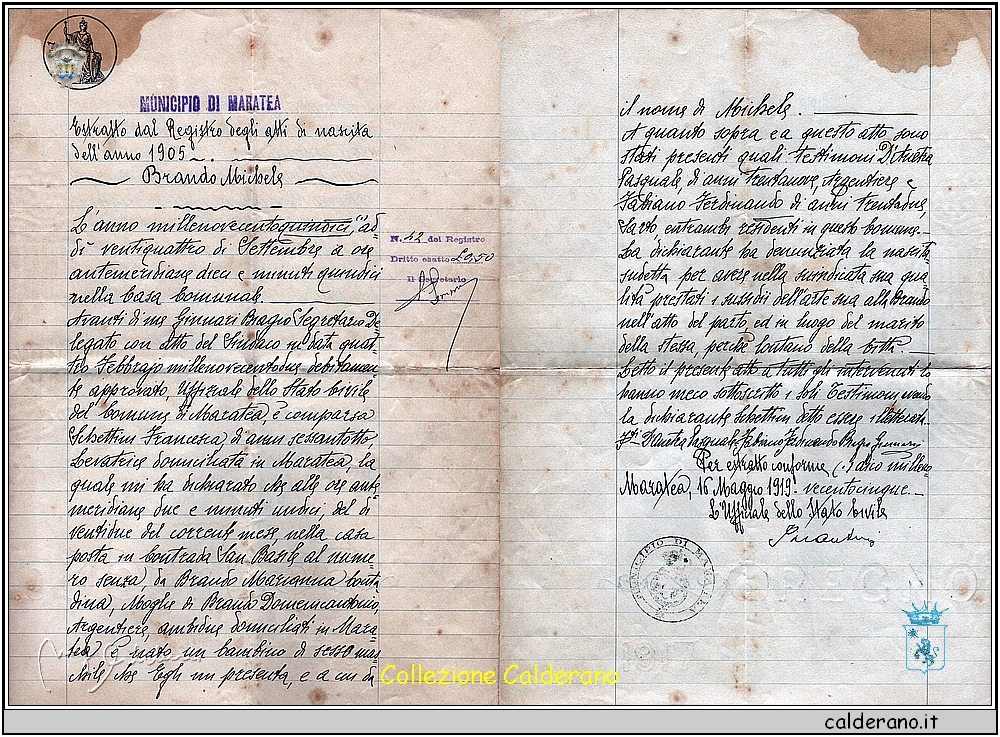 MUNICIPIO DI MARATEA
Estratto dal Registro degli atti di nascita
dell'anno 1905
Brando Michele
L'anno millenovecentoquindici, ad-
dì ventiquattro di Settembre a ore
antemeridiane dieci e minuti quindici
nella casa Comunale.
Avanti di me Ginnari Biagio Segretario De-
legato con atto del Sindaco in data quat-
tro Febbrajo millenovecentodue debitamen-
te approvato, Uffiziale dello Stato Civile
del Comune di Maratea, è comparsa
Schettini Francesca di anni sessantotto,
Levatrice domiciliata in Maratea, la
quale mi ha dichiarato che alle ore ante
meridiane due e minuti undici, del dì
ventidue del corrente mese, nella casa
posta in Contrada San Basile al nume-
ro senza, da Brando Marianna Conta
dina, Moglie di Brando Domenicantonio
Argentiere, ambidue domiciliati in Mara-
tea, è nato un bambino di sesso mas
chile che Egli mi presenta, e a cui dà
N. 42 del Registro
Dritto esatto £ 0,50
Il Segretario
il nome di Michele.
A quanto sopra e a questo atto sono
stati presenti quali testimoni D'Andrea
Pasquale di anni trentanove, Argentiere e
Fabiano Ferdinando di anni trentadue,
Sarto, entrambi residenti in questo Comune.
La dichiarante ha denunziata la nascita
sudetta per avere nella suindicata sua qua
lità prestati i sussidi dell'arte sua alla Brando
nell'atto del parto, ed in luogo del marito
della stessa, perchè lontano della Città.
Letto il presente atto a tutti gli intervenuti lo
hanno meco sottoscritto i soli Testimoni avendo
la dichiarante Schettini detto essere illetterata.
Pasquale Fabiano Ferdinando Biagio Ginnari
Per estratto conforme (. Dico milleno
Maratea, 16 Maggio 1919. vecentocinque.
L'Uffiziale dello Stato Civile
MUNICIPIO DI MARATEA
Collezione Calderano
calderano.it